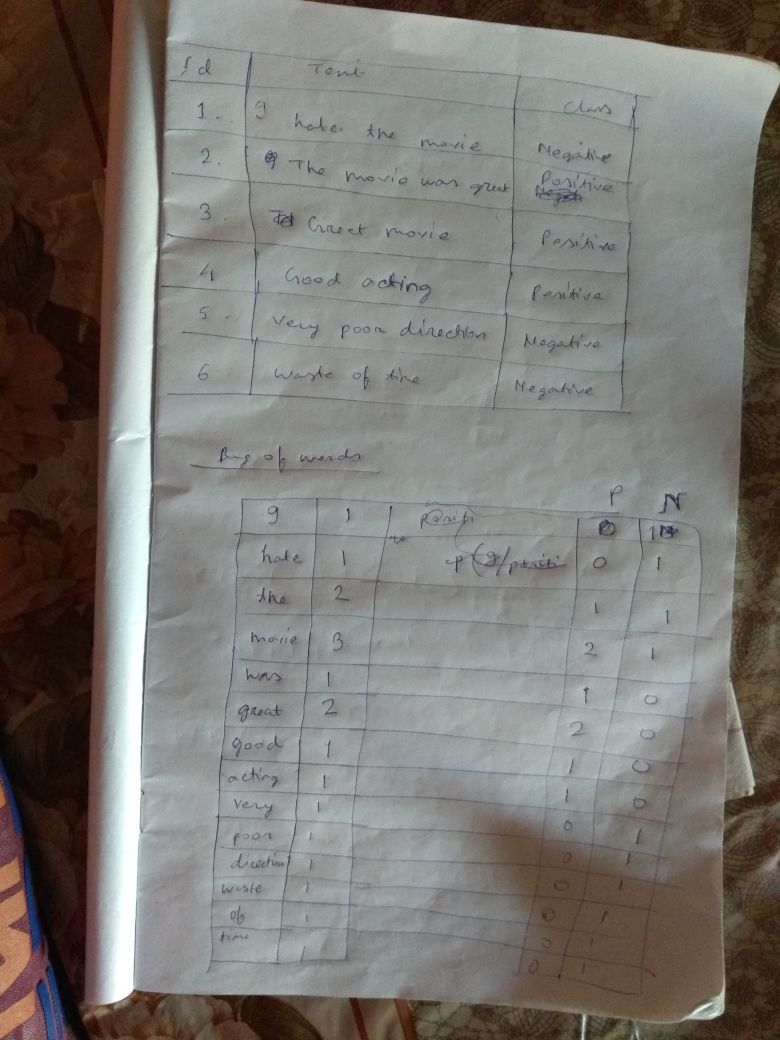 Id Text Class
1. I hate the movie Negative
2. The movie was great Positive
3. Great movie Positive
4 Good acting Positive
5. Very poor direction Negative
6 Waste of time Negative
Bag of words
P N
I 1 0 1
hate 1 0 1
the 2 1 1
movie 3 2 1
was 1 1 0
great 2 2 0
good 1 1 0
acting 1 1 0
very 1 0 1
poor 1 0 1
direction 1 0 1
waste 1 0 1
of 1 0 1
time 1 0 1